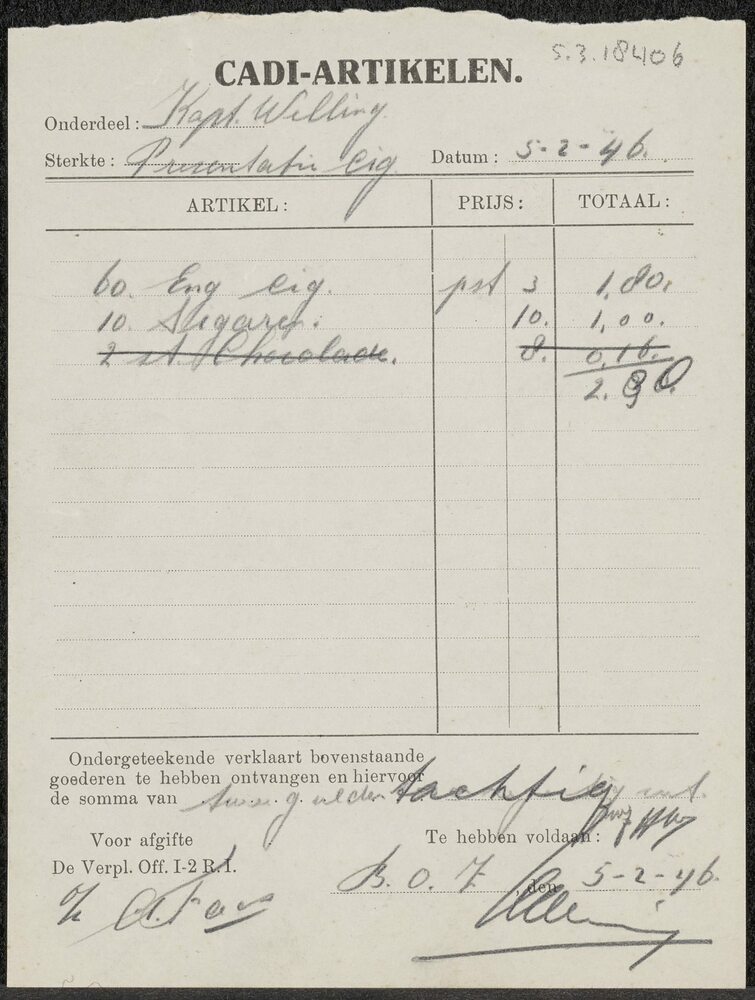 5.3.18406
CADI-ARTIKELEN.
Onderdeel: Kapt. Willing
Sterkte: Presentatie Cig Datum: 5-2-46.
ARTIKEL: PRIJS: TOTAAL:
60. Eng Cig. pst 3 1,80.
10. Sigaren. 10. 1,00.
2 st. Chocolade. 8. 0,16.
2.80
Ondergeteekende verklaart bovenstaande
goederen te hebben ontvangen en hiervoor
de somma van twee gulden tachtig cnt.
Voor afgifte Te hebben voldaan:
De Verpl. Off. I-2 R.I. B.O.Z., den 5-2-46.